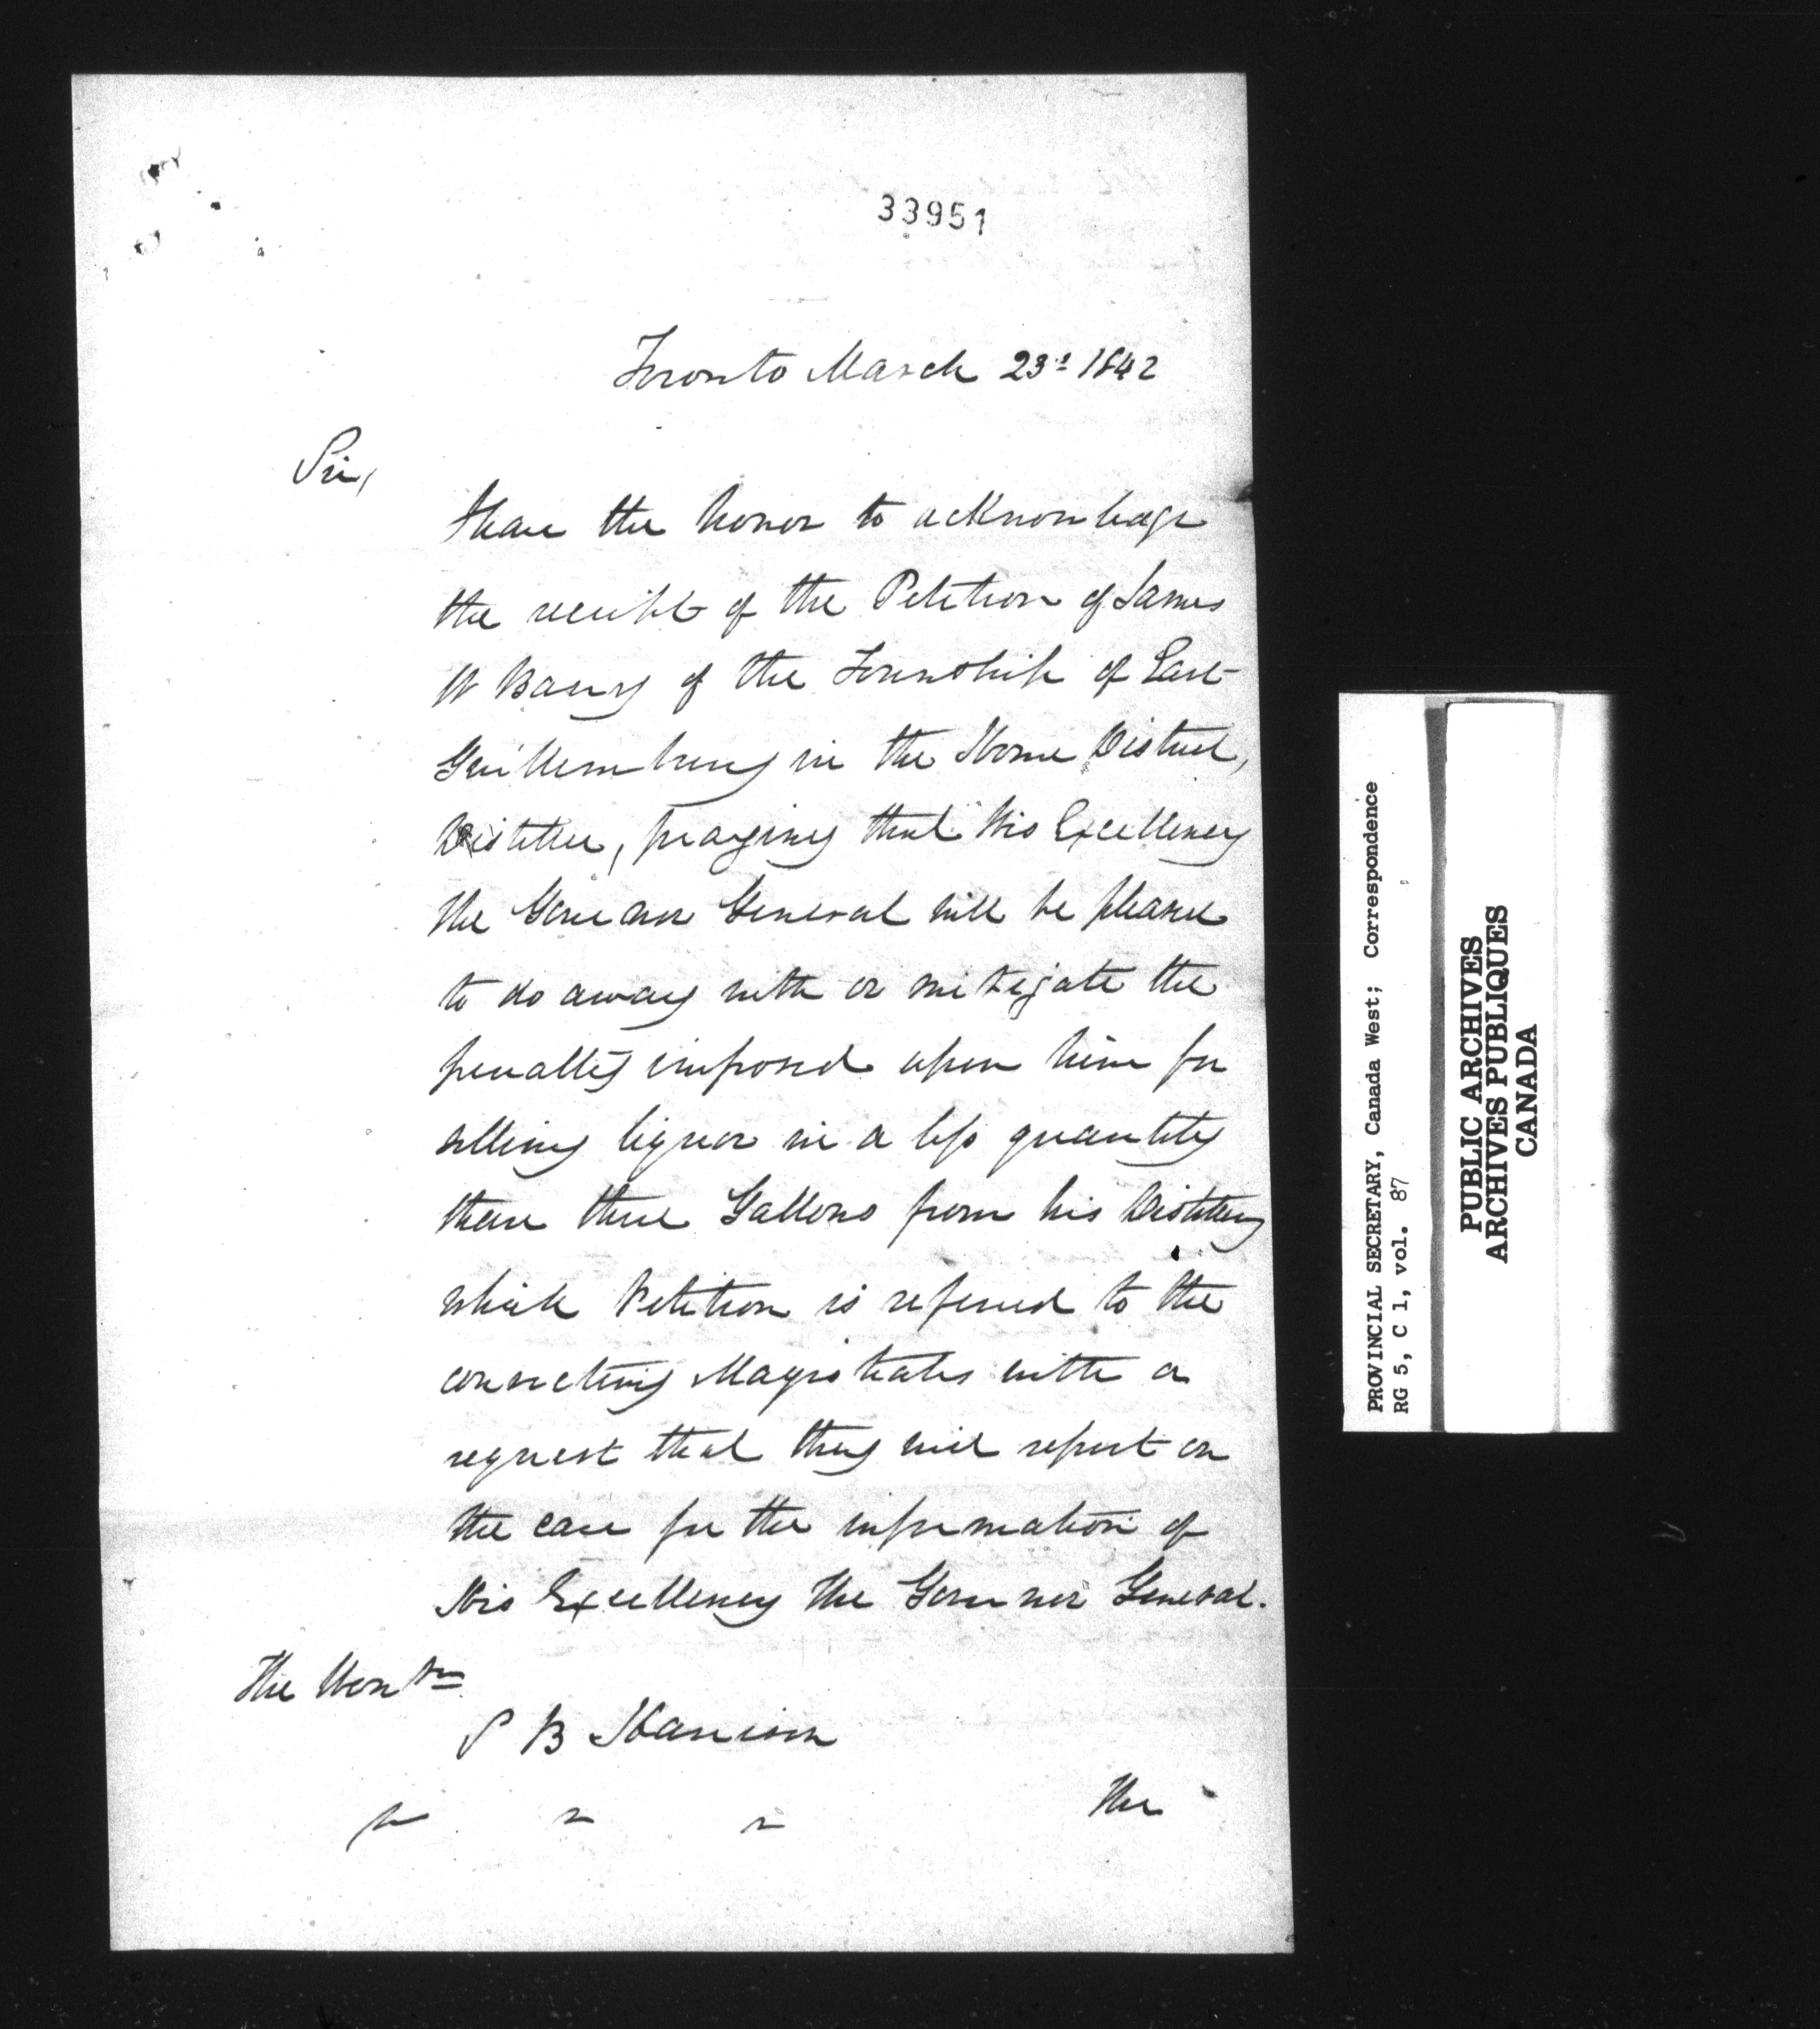 33951
Toronto March 23d 1842
Sir,
I have the honor to acknowledge
the receipt of the Petition of James
W Barry of the Township of East
Guillembury in the Home District,
Distiller, praying that His Excellency
the Governor General will be pleased
to do away with or mitigate the
penalty imposed upon him for
selling liquor in a less quantity
than three Gallons from his Distillery
which Petition is referred to the
convicting Magistrates with a
request that they will report on
the case for the information of
His Excellency the Governor General.
The Honble
S B Harrison
The
PROVINCIAL SECRETARY, Canada West; Correspondence
RG 5, C 1, vol. 87
PUBLIC ARCHIVES
ARCHIVES PUBLIQUES
CANADA